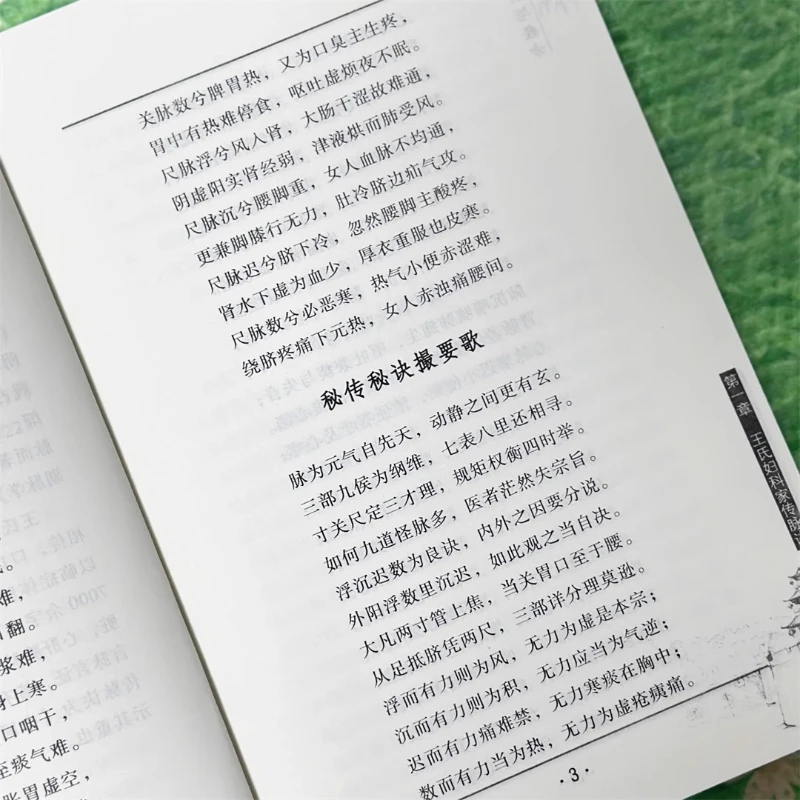 关脉数兮脾胃热，又为口臭主生疼，
胃中有热难停食，呕吐虚烦夜不眠。
尺脉浮兮风入肾，大肠干涩故难通，
阴虚阳实肾经弱，津液烘而肺受风。
尺脉沉兮腰脚重，女人血脉不均通，
更兼脚膝行无力，肚冷脐边疝气攻。
尺脉迟兮脐下冷，忽然腰脚主酸疼，
肾水下虚为血少，厚衣重服也皮寒。
尺脉数兮必恶寒，热气小便赤涩难，
绕脐疼痛下元热，女人赤浊痛腰间。
秘传秘诀撮要歌
脉为元气自先天，动静之间更有玄。
三部九侯为纲维，七表八里还相寻。
寸关尺定三才理，规矩权衡四时举。
如何九道怪脉多，医者茫然失宗旨。
浮沉迟数为良诀，内外之因要分说。
外阳浮数里沉迟，如此观之当自决。
大凡两寸管上焦，当关胃口至于腰。
从足抵脐凭两尺，三部详分理莫逊。
浮而有力则为风，无力为虚是本宗；
沉而有力则为积，无力应当为气逆；
迟而有力痛难禁，无力寒痰在胸中；
数而有力当为热，无力为虚疮痍痛。
·3·
第一章 王氏妇科家传脉
难，
翻。
浆难，
身上寒。
口咽干，
至痰气难。
胀胃虚空，